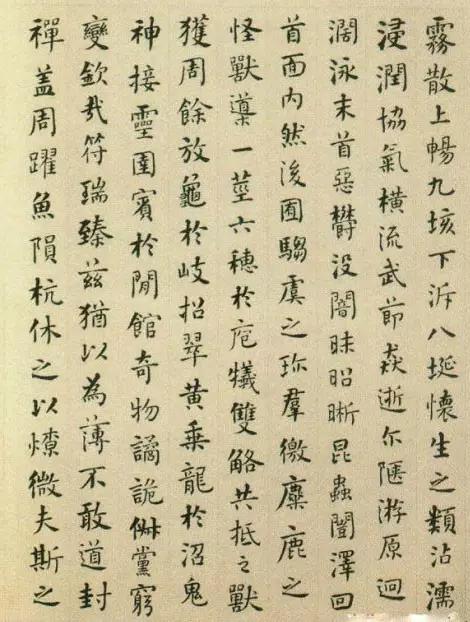 霧散上暢九垓下泝八埏懷生之類沾濡
浸潤協氣橫流武節猋逝尒陿游原迥
濶泳末首惡欝沒闇昧昭晰昆蟲闓澤回
首面内然後囿騶虞之珎羣徼麋鹿之
怪獸䆃一莖六穗於庖犧雙觡共抵之獸
獲周餘放龜於岐招翠黃乗龍於沼鬼
神接靈圉賓於閒館奇物譎詭俶黨窮
變欽㢤符瑞臻茲猶以為薄不敢道封
禪盖周躍魚隕杭休之以燎微夫斯之